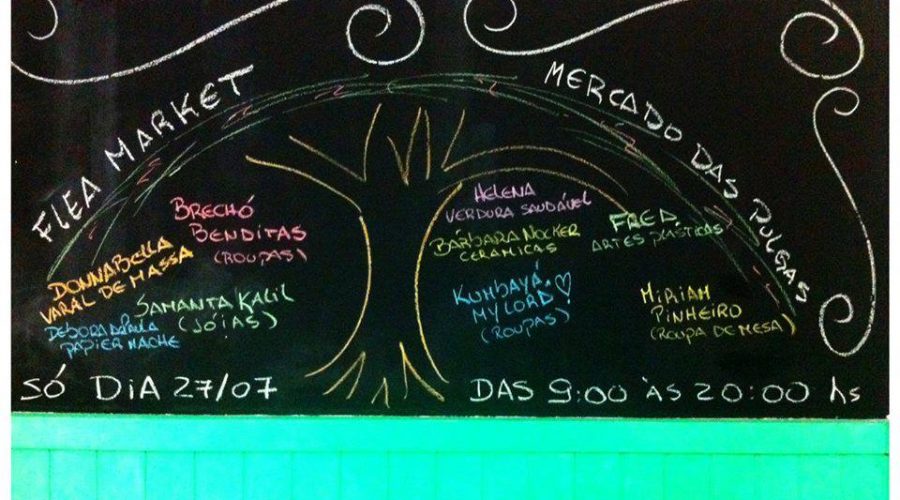 FLEA MARKET
MERCADO DAS PULGAS
BRECHÓ
BENDITAS
(ROUPAS)
DONNABELLA
VARAL DE MASSA
SAMANTA KALIL
(JÓIAS)
DEBORA
PAPIER MACHE
HELENA
VERDURA SAUDÁVEL
BÁRBARA NOCKER
CERÂMICAS
FRED
ARTES PLÁSTICAS
KUMBAYÁ!
MY LORD!
(ROUPAS)
MIRIAM
PINHEIRO
(ROUPA DE MESA)
SÓ DIA 27/07
DAS 9:00 ÀS 20:00 hs